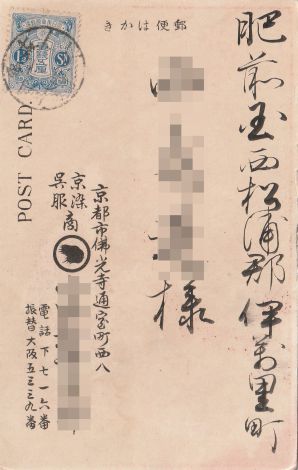 郵便はかき
POST CARD
肥前国西松浦郡伊万里町
様
京都市佛光寺通室町西入
京染
呉服商
電話下七一六番
振替大阪五三三九番